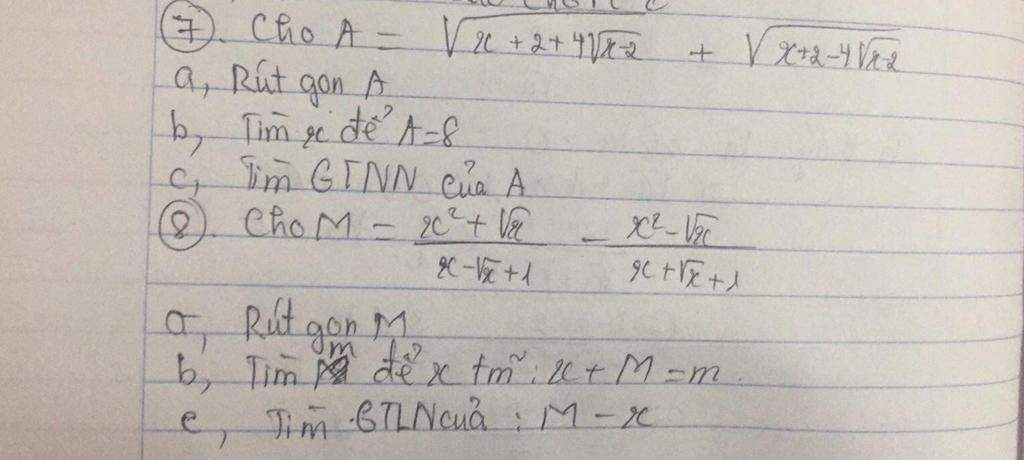 ⑦. Cho A = √(x + 2 + 4√(x-2)) + √(x+2-4√(x-2))
a, Rút gọn A
b, Tìm x để A=8
c, Tìm GTNN của A
⑧. Cho M = (x² + √x)/(x-√x+1) - (x²-√x)/(x+√x+1)
a, Rút gọn M
b, Tìm m để x tm : x + M = m.
c, Tìm GTLN của : M - x